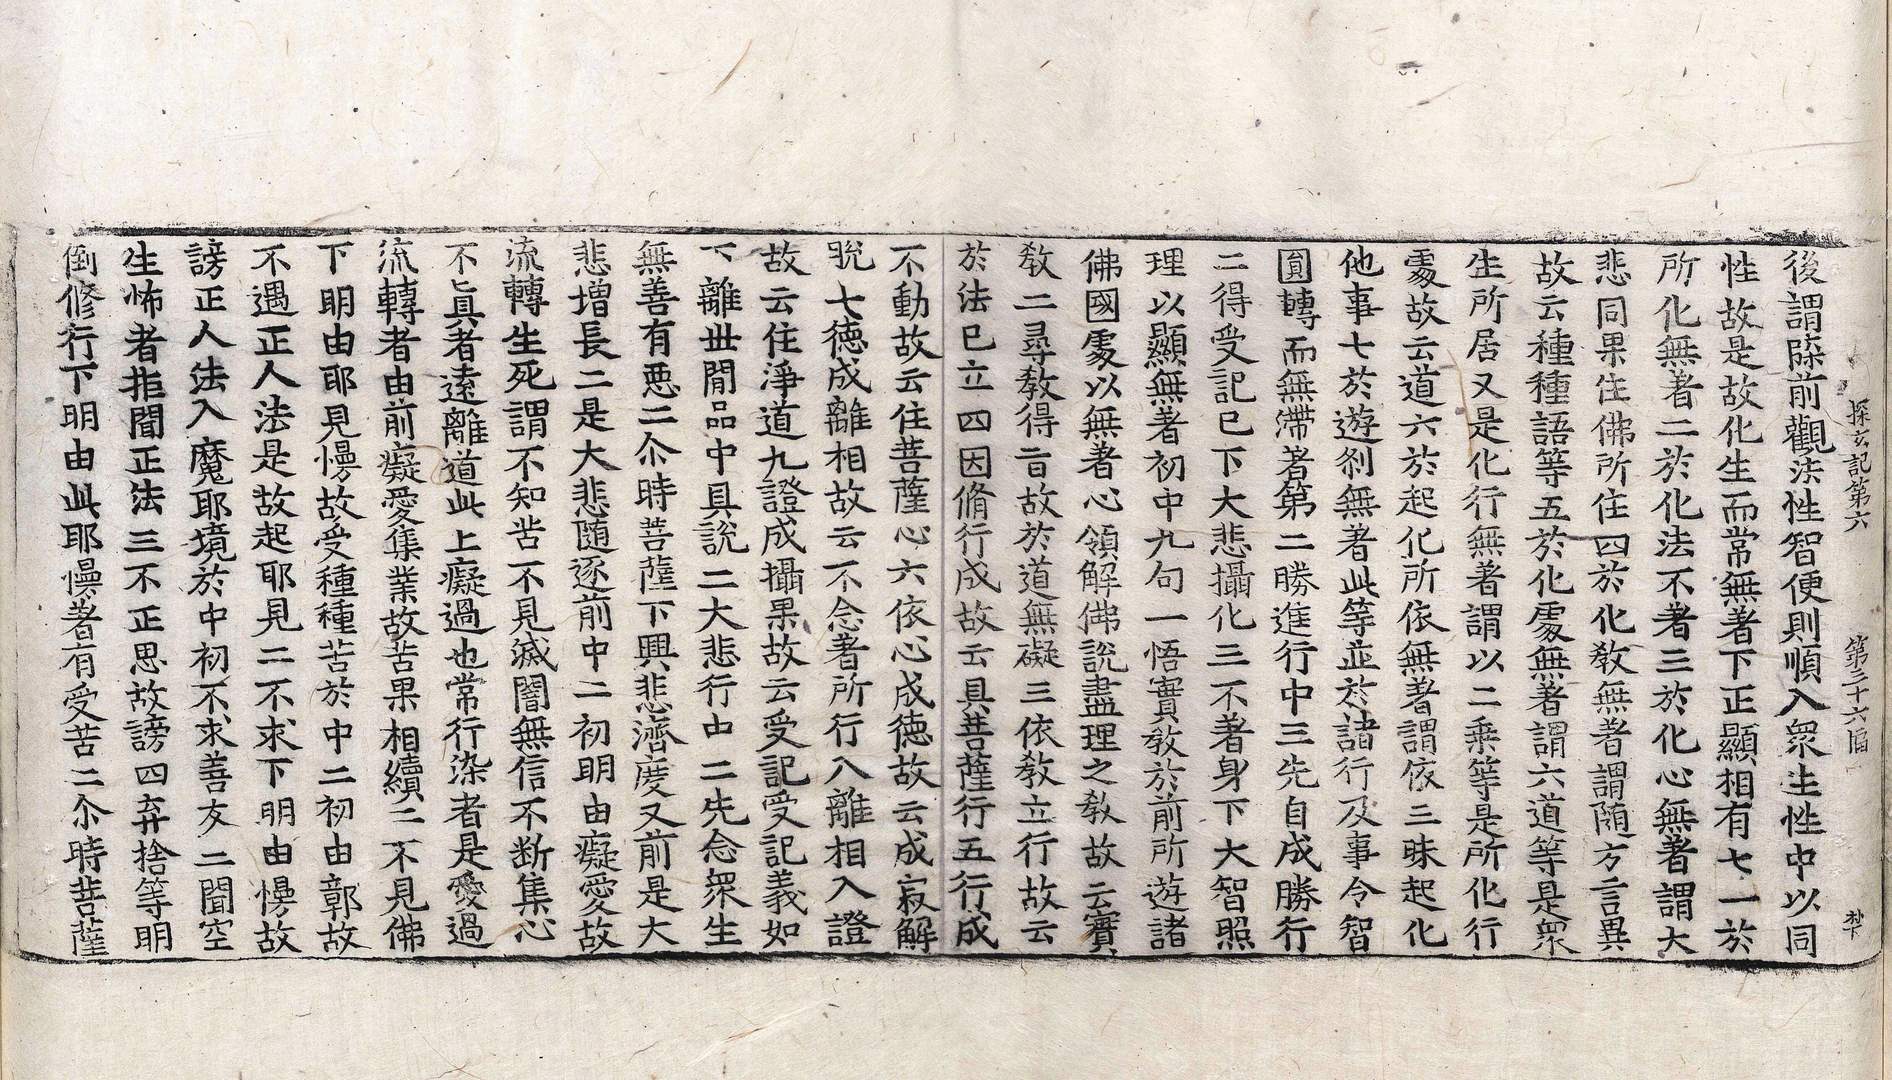 探玄記第六　第三十六幅　杪
後謂隥前觀法性智便則順入衆生性中以同
性故是故化生而常無著下正顯相有七一於
所化無著二於化法不著三於化心無著謂大
悲同果住佛所住四於化敎無著謂随方言異
故云種種語等五於化䖏無著謂六道等是衆
生所居又是化行無著謂以二乗等是所化行
䖏故云道六於起化所依無著謂依三昧起化
他事七於遊刹無著此等並於諸行及事令智
圎轉而無滯著第二勝進行中三先自成勝行
二得受記已下大悲攝化三不著身下大智照
理以顯無著初中九句一悟實敎於前所遊諸
佛國䖏以無著心領解佛說盡理之敎故云實
敎二尋敎得旨故於道無礙三依敎立行故云
於法已立四因脩行成故云具菩薩行五行成
不動故云住菩薩心六依心成徳故云成寂解
脱七徳成離相故云不念著所行八離相入證
故云住淨道九證成攝果故云受記受記義如
下離世閒品中具說二大悲行由二先念衆生
無善有惡二尒時菩薩下興悲濟度又前是大
悲增長二是大悲随逐前中二初明由癡愛故
流轉生死謂不知苦不見滅闇無信不断集心
不眞者逺離道此上癡過也常行染者是愛過
流轉者由前癡愛集業故苦果相續二不見佛
下明由耶見慢故受種種苦於中二初由鄣故
不遇正人法是故起耶見二不求下明由慢故
謗正人法入魔耶境於中初不求善友二聞空
生怖者拒聞正法三不正思故謗四弃捨等明
倒修行下明由此耶慢著有受苦二尒時菩薩